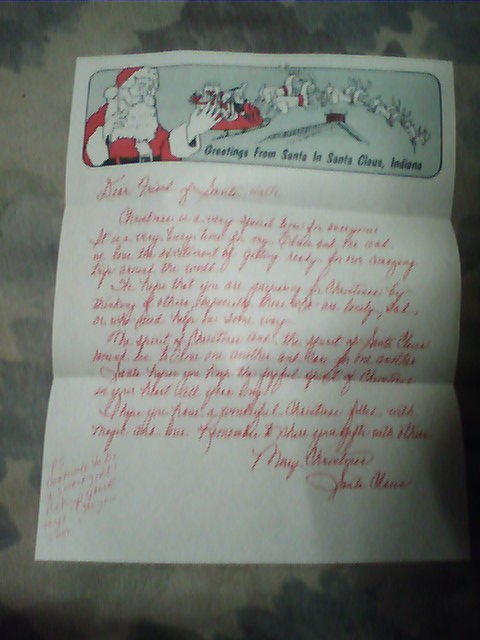 Greetings From Santa In Santa Claus, Indiana
Dear Friend of Santa
Christmas is a very special time for everyone
It is a very busy time for my and me and
we love the excitement of getting ready for our amazing
trip around the world.
We hope that you are preparing for Christmas by
thinking of others, especially those who are lonely, sad,
or who need help in some way.
The spirit of Christmas and the spirit of Santa Claus
to love one another and for one another
Santa hopes you keep the joyful spirit of Christmas
in your heart all year long
I hope you have a wonderful Christmas filled with
magic and love. Remember to share your gifts with others
Merry Christmas
Santa Claus
P.S.